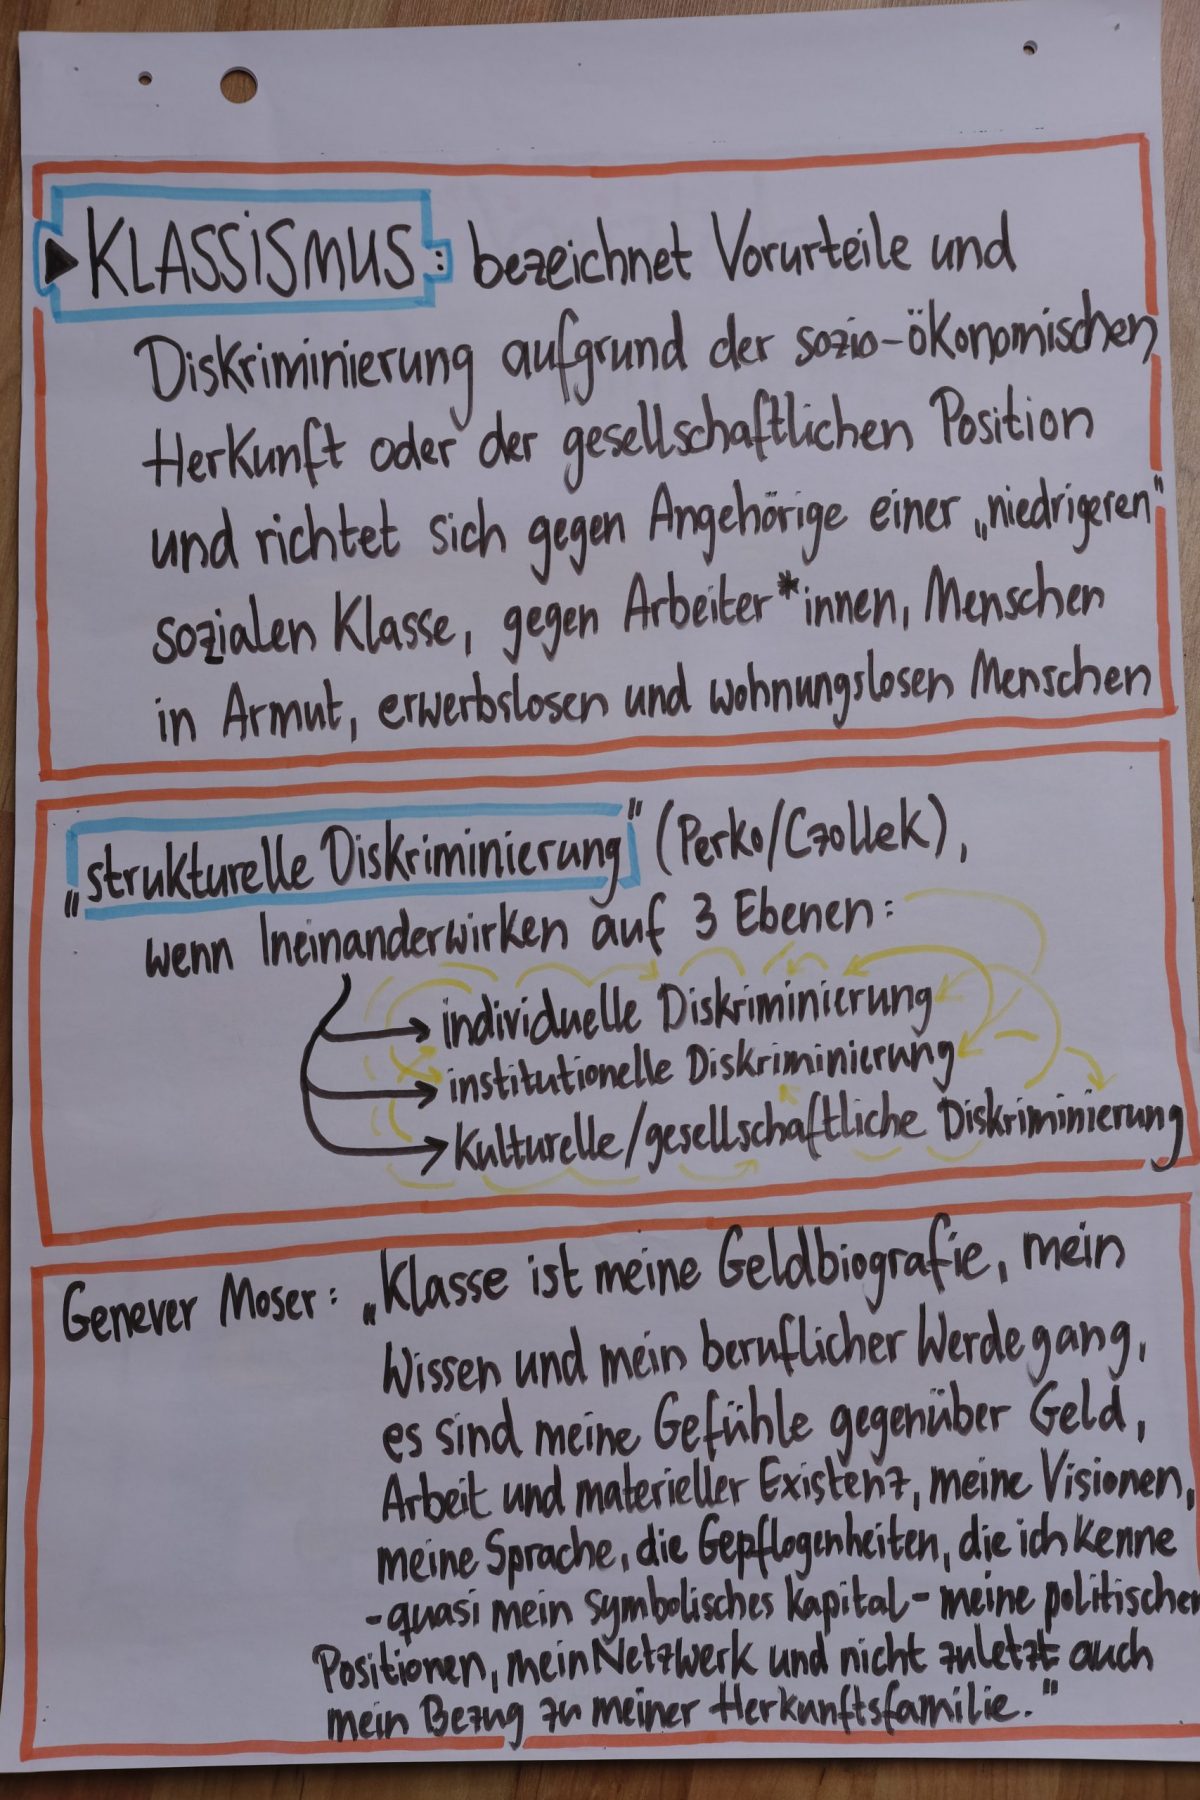 ▶ KLASSISMUS: bezeichnet Vorurteile und
Diskriminierung aufgrund der sozio-ökonomischen
Herkunft oder der gesellschaftlichen Position
und richtet sich gegen Angehörige einer „niedrigeren"
sozialen Klasse, gegen Arbeiter*innen, Menschen
in Armut, erwerbslosen und wohnungslosen Menschen
„strukturelle Diskriminierung" (Perko/Czollek),
wenn Ineinanderwirken auf 3 Ebenen:
individuelle Diskriminierung
institutionelle Diskriminierung
Kulturelle/gesellschaftliche Diskriminierung
Genever Moser: „Klasse ist meine Geldbiografie, mein
Wissen und mein beruflicher Werdegang,
es sind meine Gefühle gegenüber Geld,
Arbeit und materieller Existenz, meine Visionen,
meine Sprache, die Gepflogenheiten, die ich kenne
- quasi mein symbolisches Kapital - meine politischen
Positionen, mein Netzwerk und nicht zuletzt auch
mein Bezug zu meiner Herkunftsfamilie."